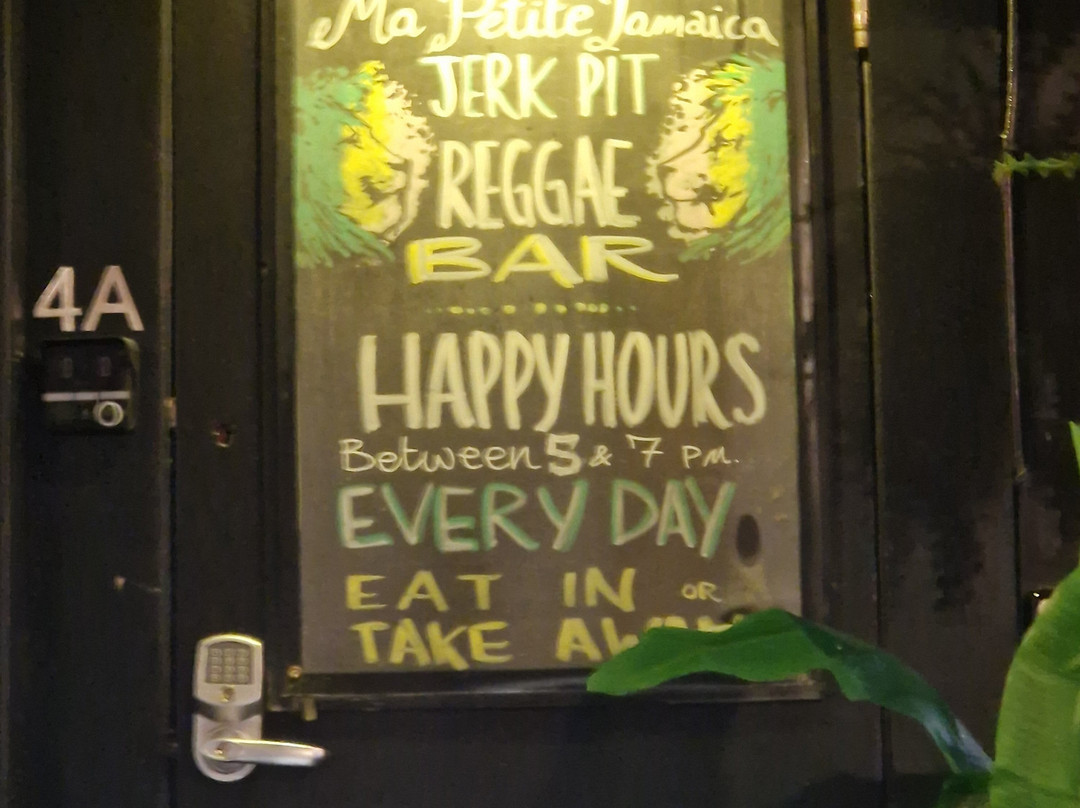 Ma Petite Jamaica
JERK PIT
REGGAE
BAR
HAPPY HOURS
Between 5 & 7 PM.
EVERY DAY
EAT IN OR
TAKE
4A